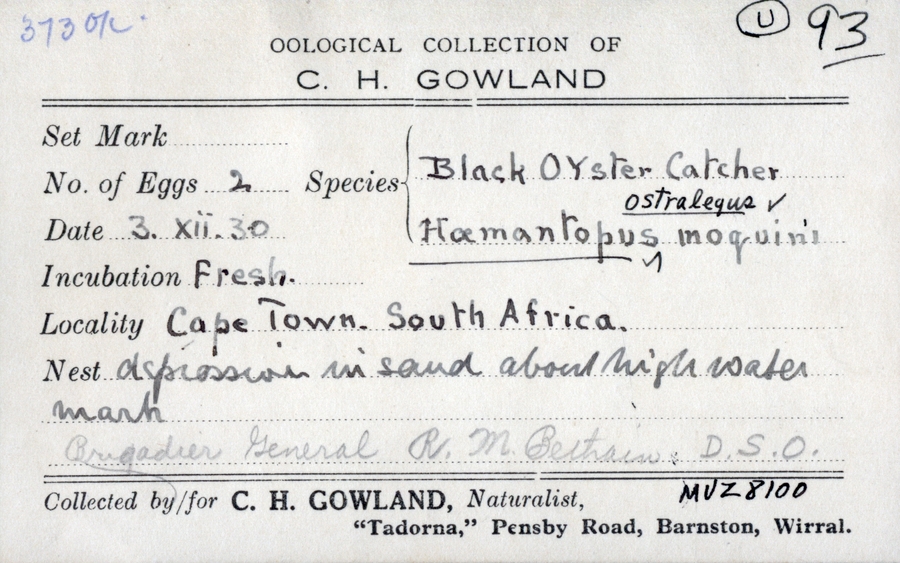 373 ok.
U 93
OOLOGICAL COLLECTION OF
C. H. GOWLAND
Set Mark
No. of Eggs 2 Species
Black Oyster Catcher
ostralegus ✓
Date 3. xii. 30
Hæmantopus moquini
Incubation Fresh.
Locality Cape Town. South Africa.
Nest depression in sand about high water
mark
Brigadier General R. M. D.S.O.
Collected by/for C. H. GOWLAND, Naturalist,
MVZ 8100
"Tadorna," Pensby Road, Barnston, Wirral.